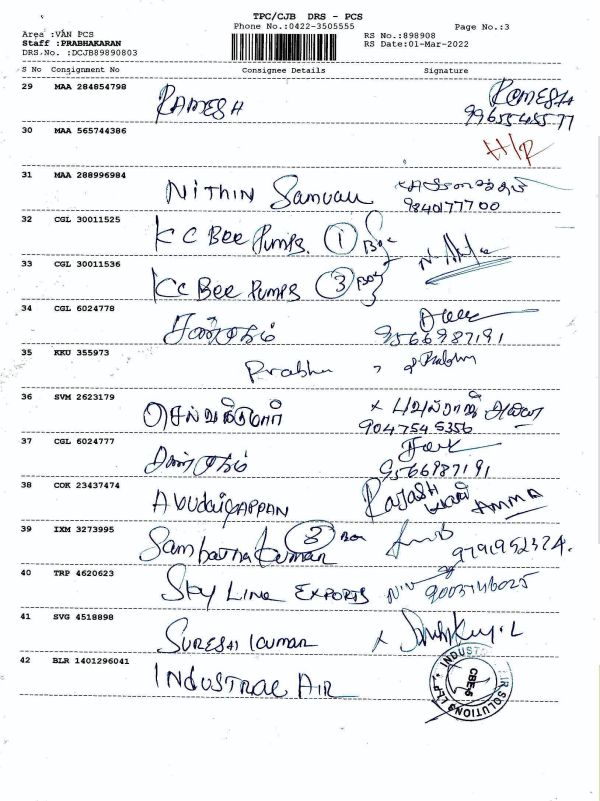 TPC/CJB DRS - PCS
Phone No.:0422-3505555 Page No.:3
Area :VAN PCS RS No.:898908
Staff :PRABHAKARAN RS Date:01-Mar-2022
DRS.No. :DCJB89890803
S No Consignment No Consignee Details Signature
29 MAA 284854798 RAMESH RAMESH
9965545577
30 MAA 565744386 H/R
31 MAA 288996984 NITHIN
9840177700
32 CGL 30011525 K C Bee Pumps. 1 Box
33 CGL 30011536 K C Bee Pumps 3 Box
34 CGL 6024778
9566987191
35 KKU 355973 Prabhu Prabhu
36 SVM 2623179 செல்வகுமார்
9047545356
37 CGL 6024777
9566987191
38 COK 23437474 AVUDAIYAPPAN RAJASH AMMA
39 IXM 3273995 Sampathkumar 3 Box
9791952324.
40 TRP 4620623 SKY LINE EXPORTS 9003746025
41 SVG 4518898 SURESH KUMAR
42 BLR 1401296041 INDUSTRAL AIR
INDUSTRIAL AIR SOLUTIONS LLP
CBE-6